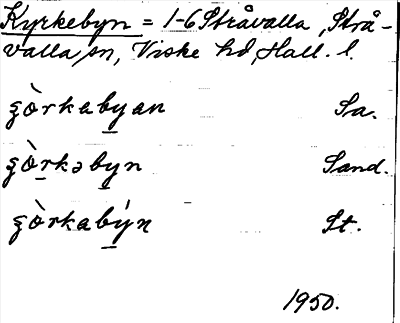 Kyrkebyn = 1-6 Stråvalla, Strå-
valla sn, Viske hd, Hall. l.
ʂòrkabyan Sa.
ʂòrkəbyn Sand.
ʂòrkabýn St.
1950.